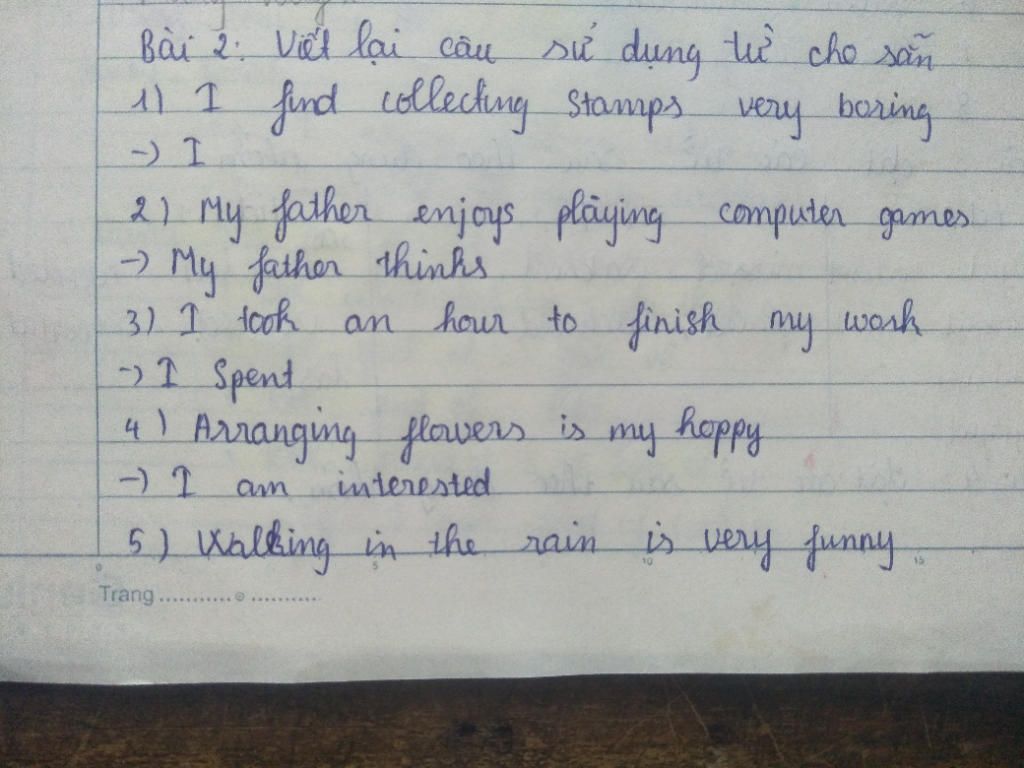 Bài 2: Viết lại câu sử dụng từ cho sẵn
1) I find collecting stamps very boring
-> I
2) My father enjoys playing computer games
-> My father thinks
3) I took an hour to finish my work
-> I Spent
4) Arranging flowers is my hoppy
-> I am interested
5) Walking in the rain is very funny
0 5 10 15
Trang ...........⊙...........